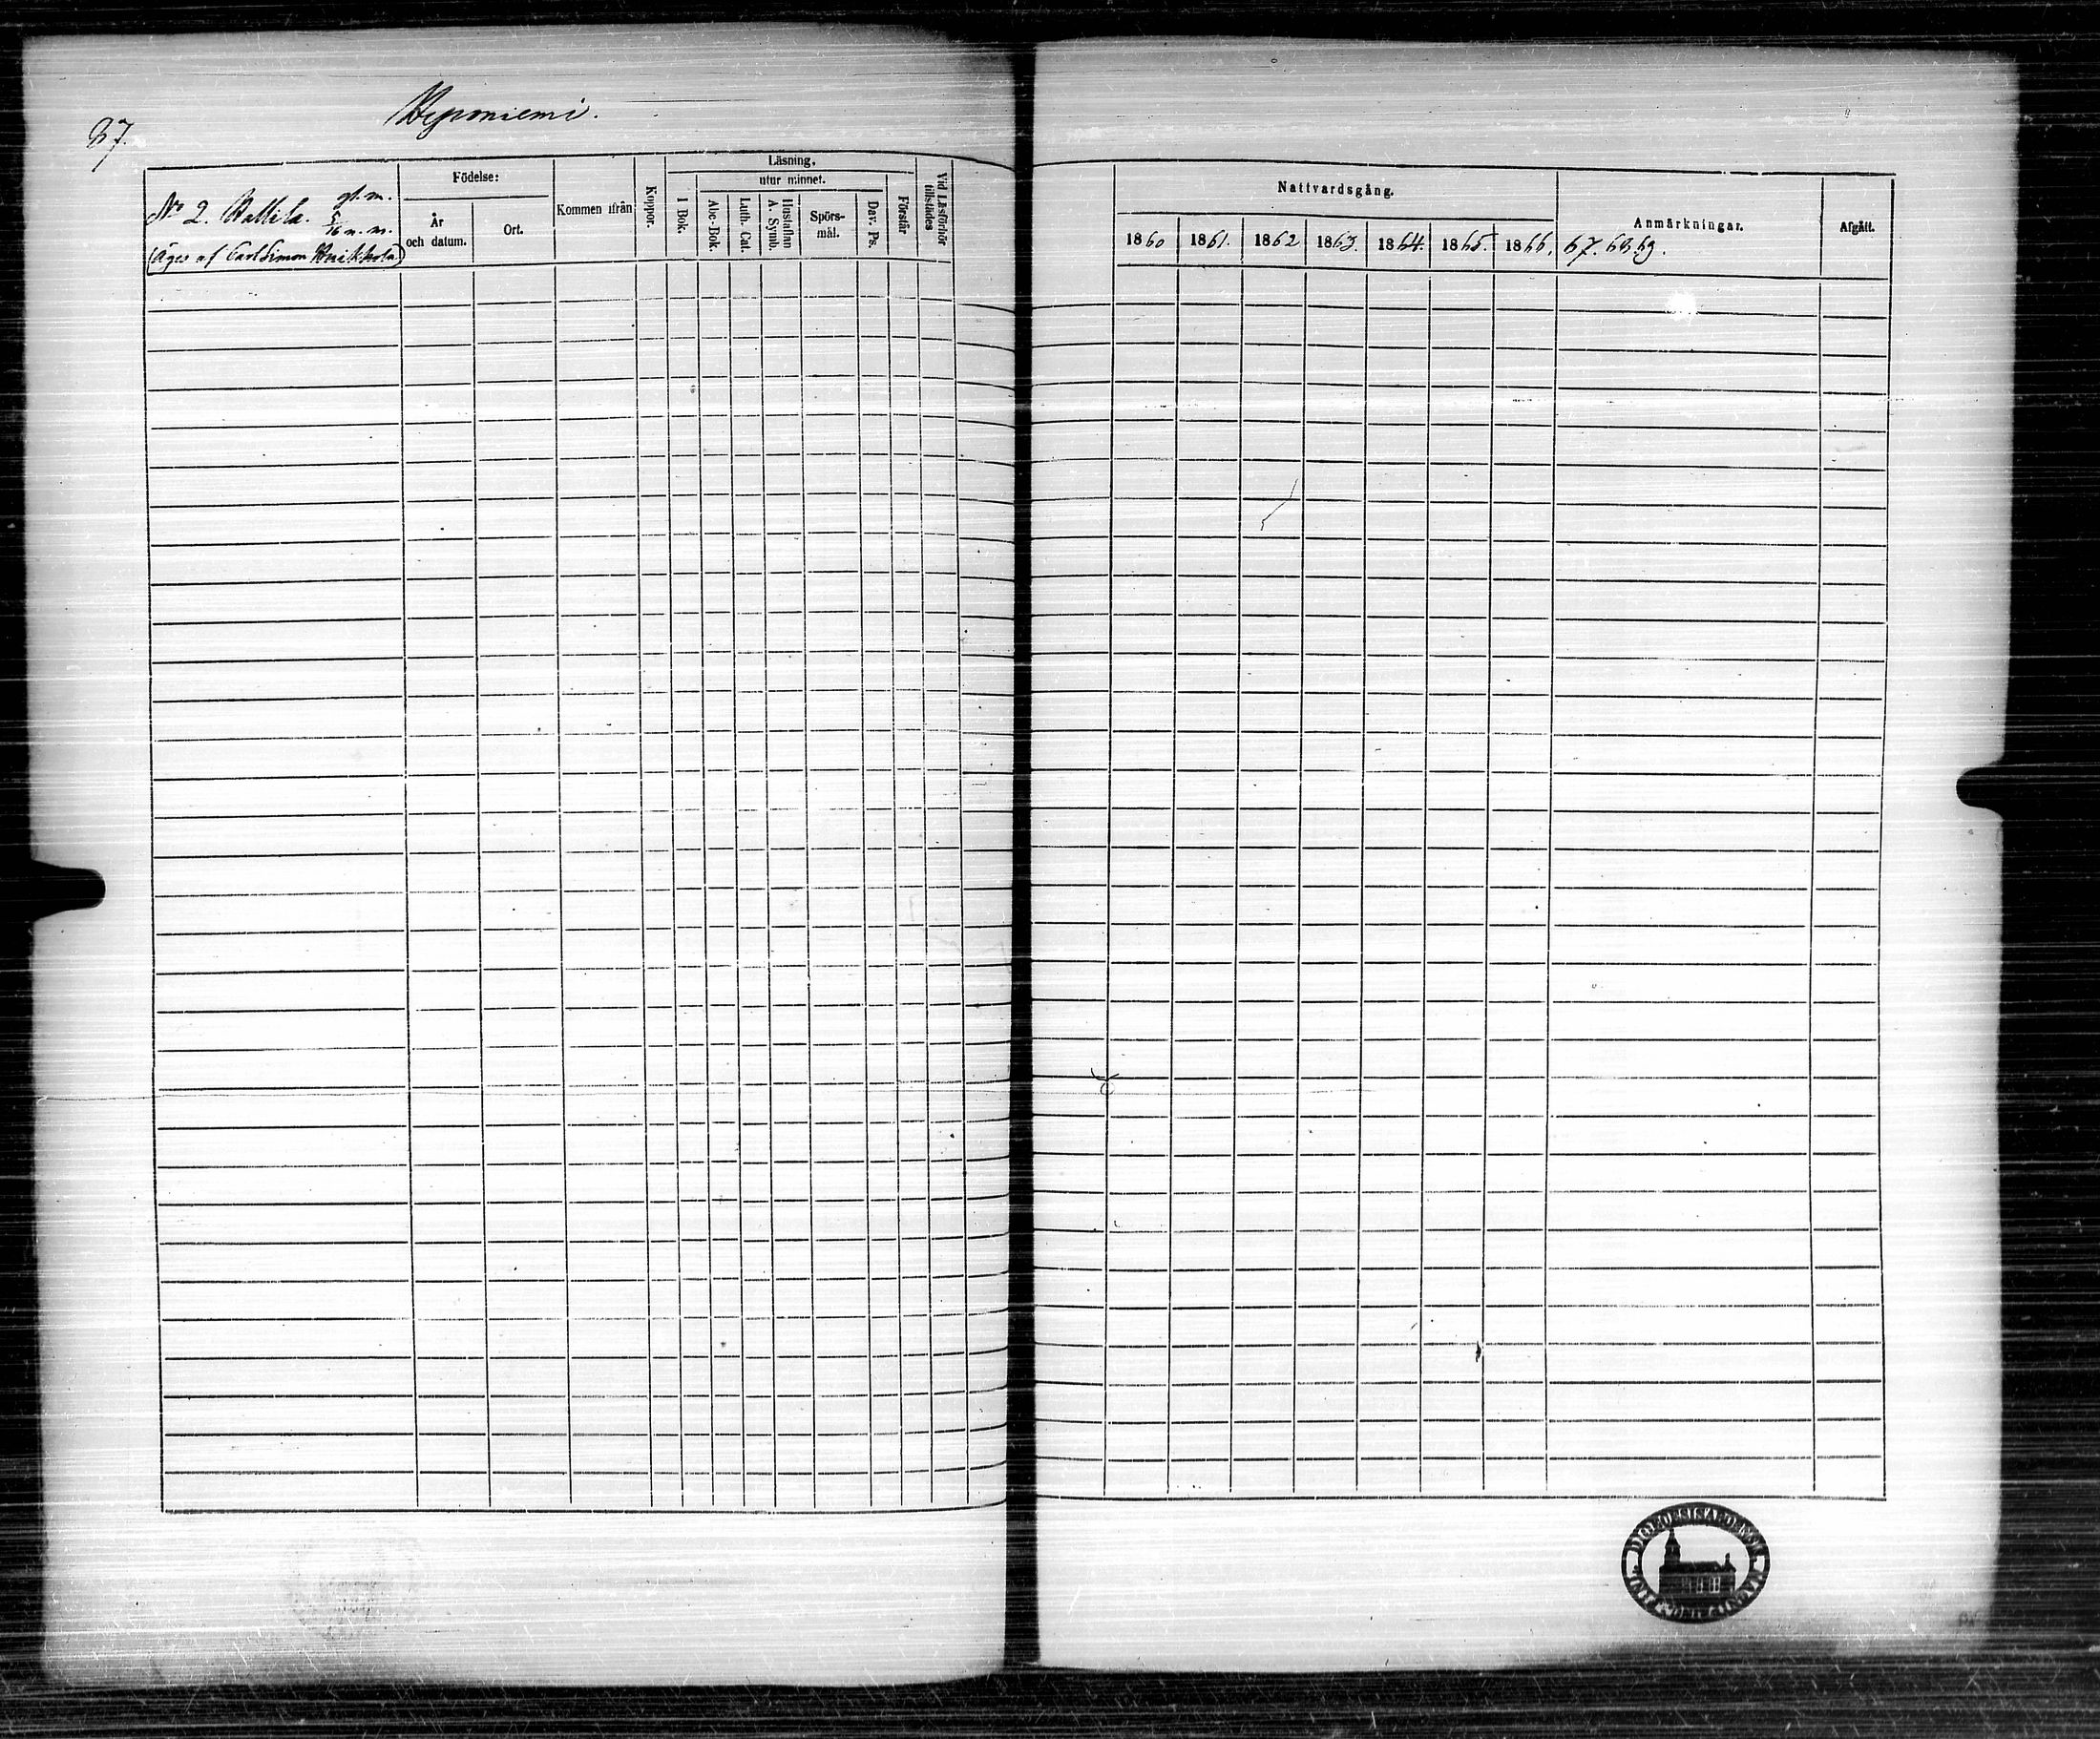 37.
Heponiemi.
No 2. Wallila. gl. m.
5/16 n. m.
(Äges af Carl Simon
Födelse:
År och datum.
Ort.
Kommen ifrån
Koppor.
Läsning,
utur minnet.
I Bok.
Abc-Bok.
Luth. Cat.
Hustaflan A. Symb.
Spörs-mål.
Dav. Ps.
Förstår
Vid Läsförhör tillstädes
Nattvardsgång.
1860 1861. 1862 1863. 1864. 1865. 1866.
Anmärkningar.
67. 68. 69.
Afgått.